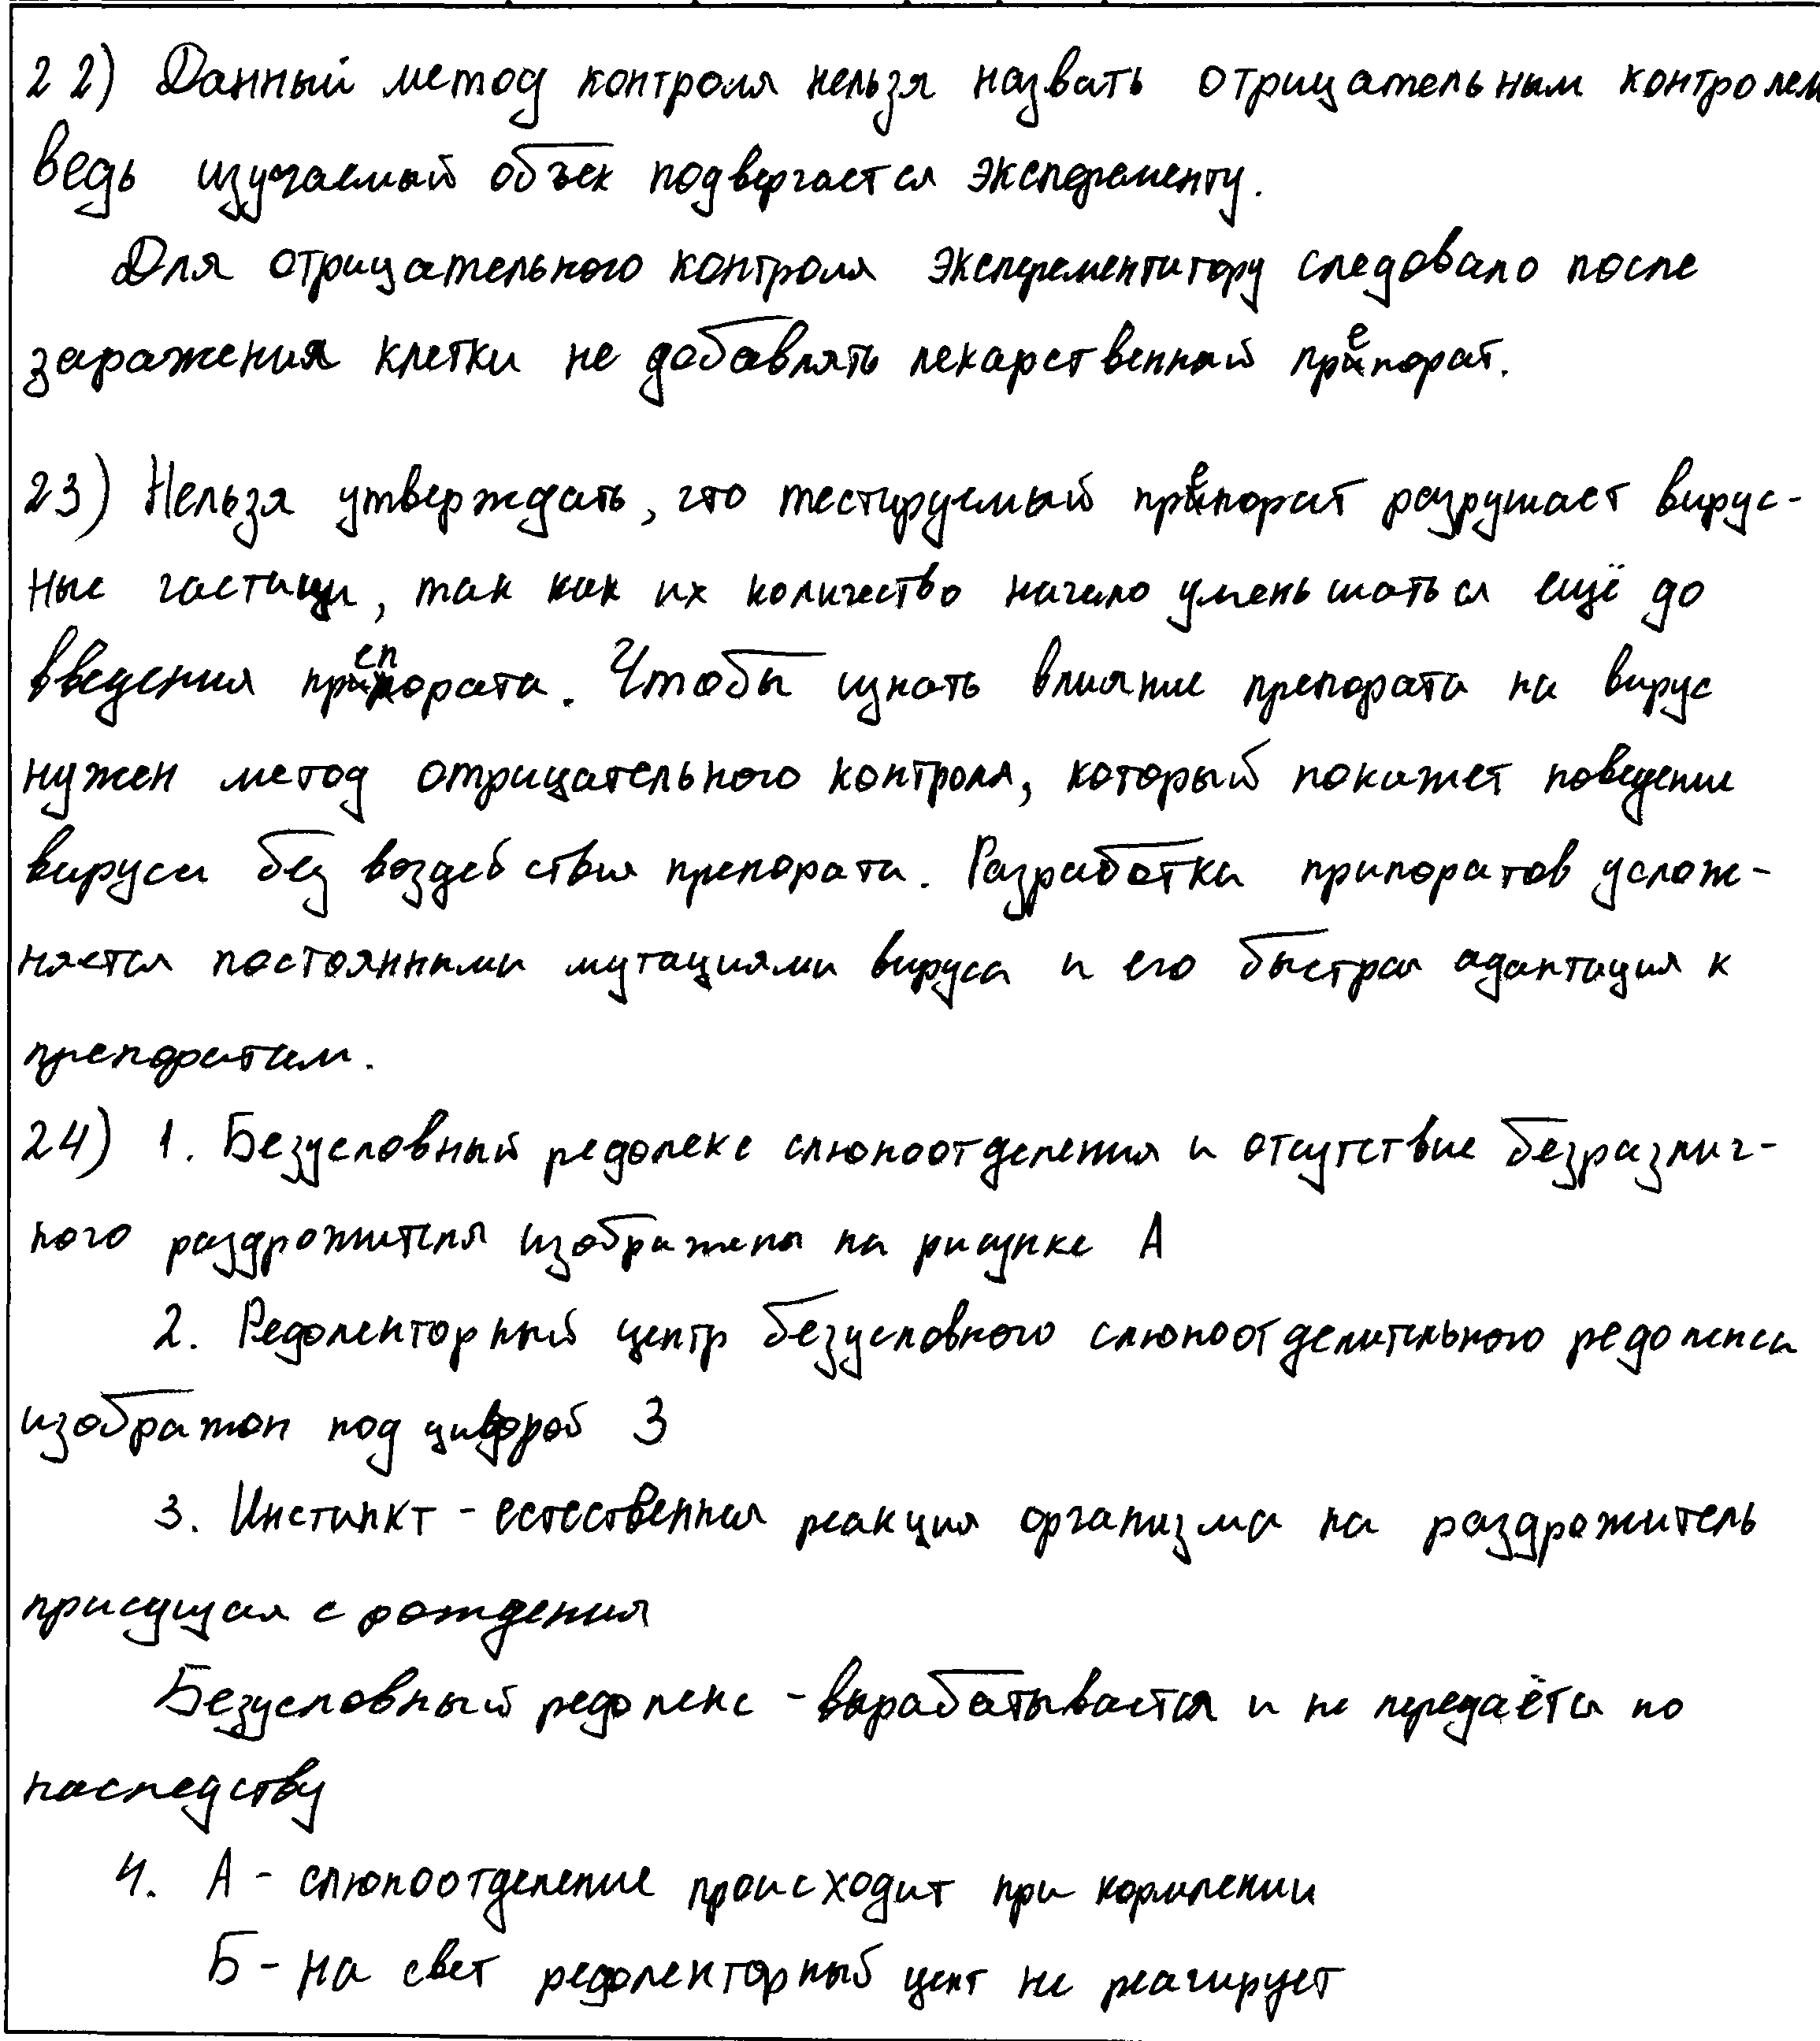 22) Данный метод контроля нельзя назвать отрицательным контролем
ведь изучаемый объек подвергается эксперементу.
Для отрицательного контроля эксперементитору следовало после
заражения клетки не добавлять лекарственный препорат.
23) Нельзя утверждать, что тестируемый препорат разрушает вирус-
ные частицы, так как их количество начало уменьшаться ещё до
введения препората. Чтобы узнать влияние препората на вирус
нужен метод отрицательного контроля, который покажет поведение
вируса без воздействия препората. Разработка припоратов услож-
няется постоянными мутациями вируса и его быстрая адаптация к
препоратам.
24) 1. Безусловный рефлекс слюноотделения и отсутствие безразлич-
ного раздрожителя изображены на рисунке А
2. Рефлекторный центр безусловного слюноотделительного рефлекса
изображон под цифрой 3
3. Инстинкт - естественная реакция организма на раздрожитель
присущая с рождения
Безусловный рефлекс - вырабатывается и не передаётся по
наследству
4. А - слюноотделение происходит при кормлении
Б - на свет рефлекторный цент не реагирует